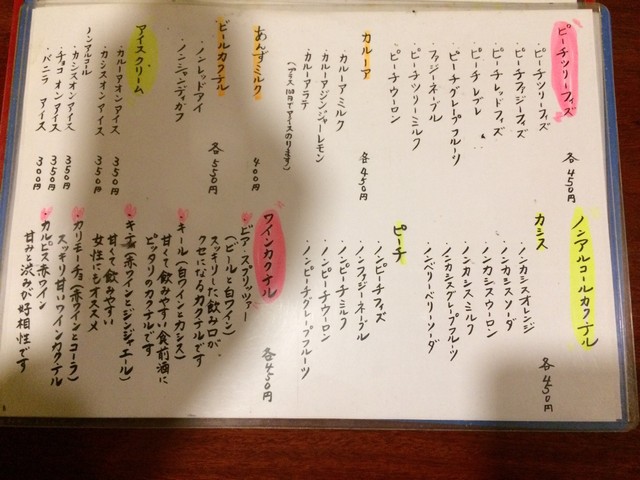 ピーチツリーフィズ
各450円
・ピーチツリーフィズ
・ピーチファジーフィズ
・ピーチレッドフィズ
・ピーチレブレ
・ピーチグレープフルーツ
・ファジーネーブル
・ピーチツリーミルク
・ピーチウーロン
カルーア
各450円
・カルーアミルク
・カルーアジンジャーレモン
・カルーアラテ
(プラス100円でアイスのります)
あんずミルク
400円
ビールカクテル
各550円
・ノンレッドアイ
・ノンシャンディガフ
アイスクリーム
・カルーアオンアイス
350円
・カシスオンアイス
350円
ノンアルコール
・カシスオンアイス
350円
・チョコオンアイス
350円
・バニラアイス
300円
ノンアルコールカクテル
カシス
各450円
・ノンカシスオレンジ
・ノンカシスソーダ
・ノンカシスウーロン
・ノンカシスミルク
・ノンカシスグレープフルーツ
・ノンベリーベリーソーダ
ピーチ
・ノンピーチフィズ
・ノンファジーネーブル
・ノンピーチミルク
・ノンピーチウーロン
・ノンピーチグレープフルーツ
ワインカクテル
各450円
・ビア・スプリッツァー
(ビールと白ワイン)
スッキリした飲み口が、
クセになるカクテルです
・キール(白ワインとカシス)
甘くて飲みやすい食前酒に
ピッタリのカクテルです
・キティ(赤ワインとジンジャエール)
甘くて飲みやすい
女性にもオススメ
・カリモーチョ(赤ワインとコーラ)
スッキリ甘いワインカクテル
・カルピス赤ワイン
甘みと渋みが好相性です